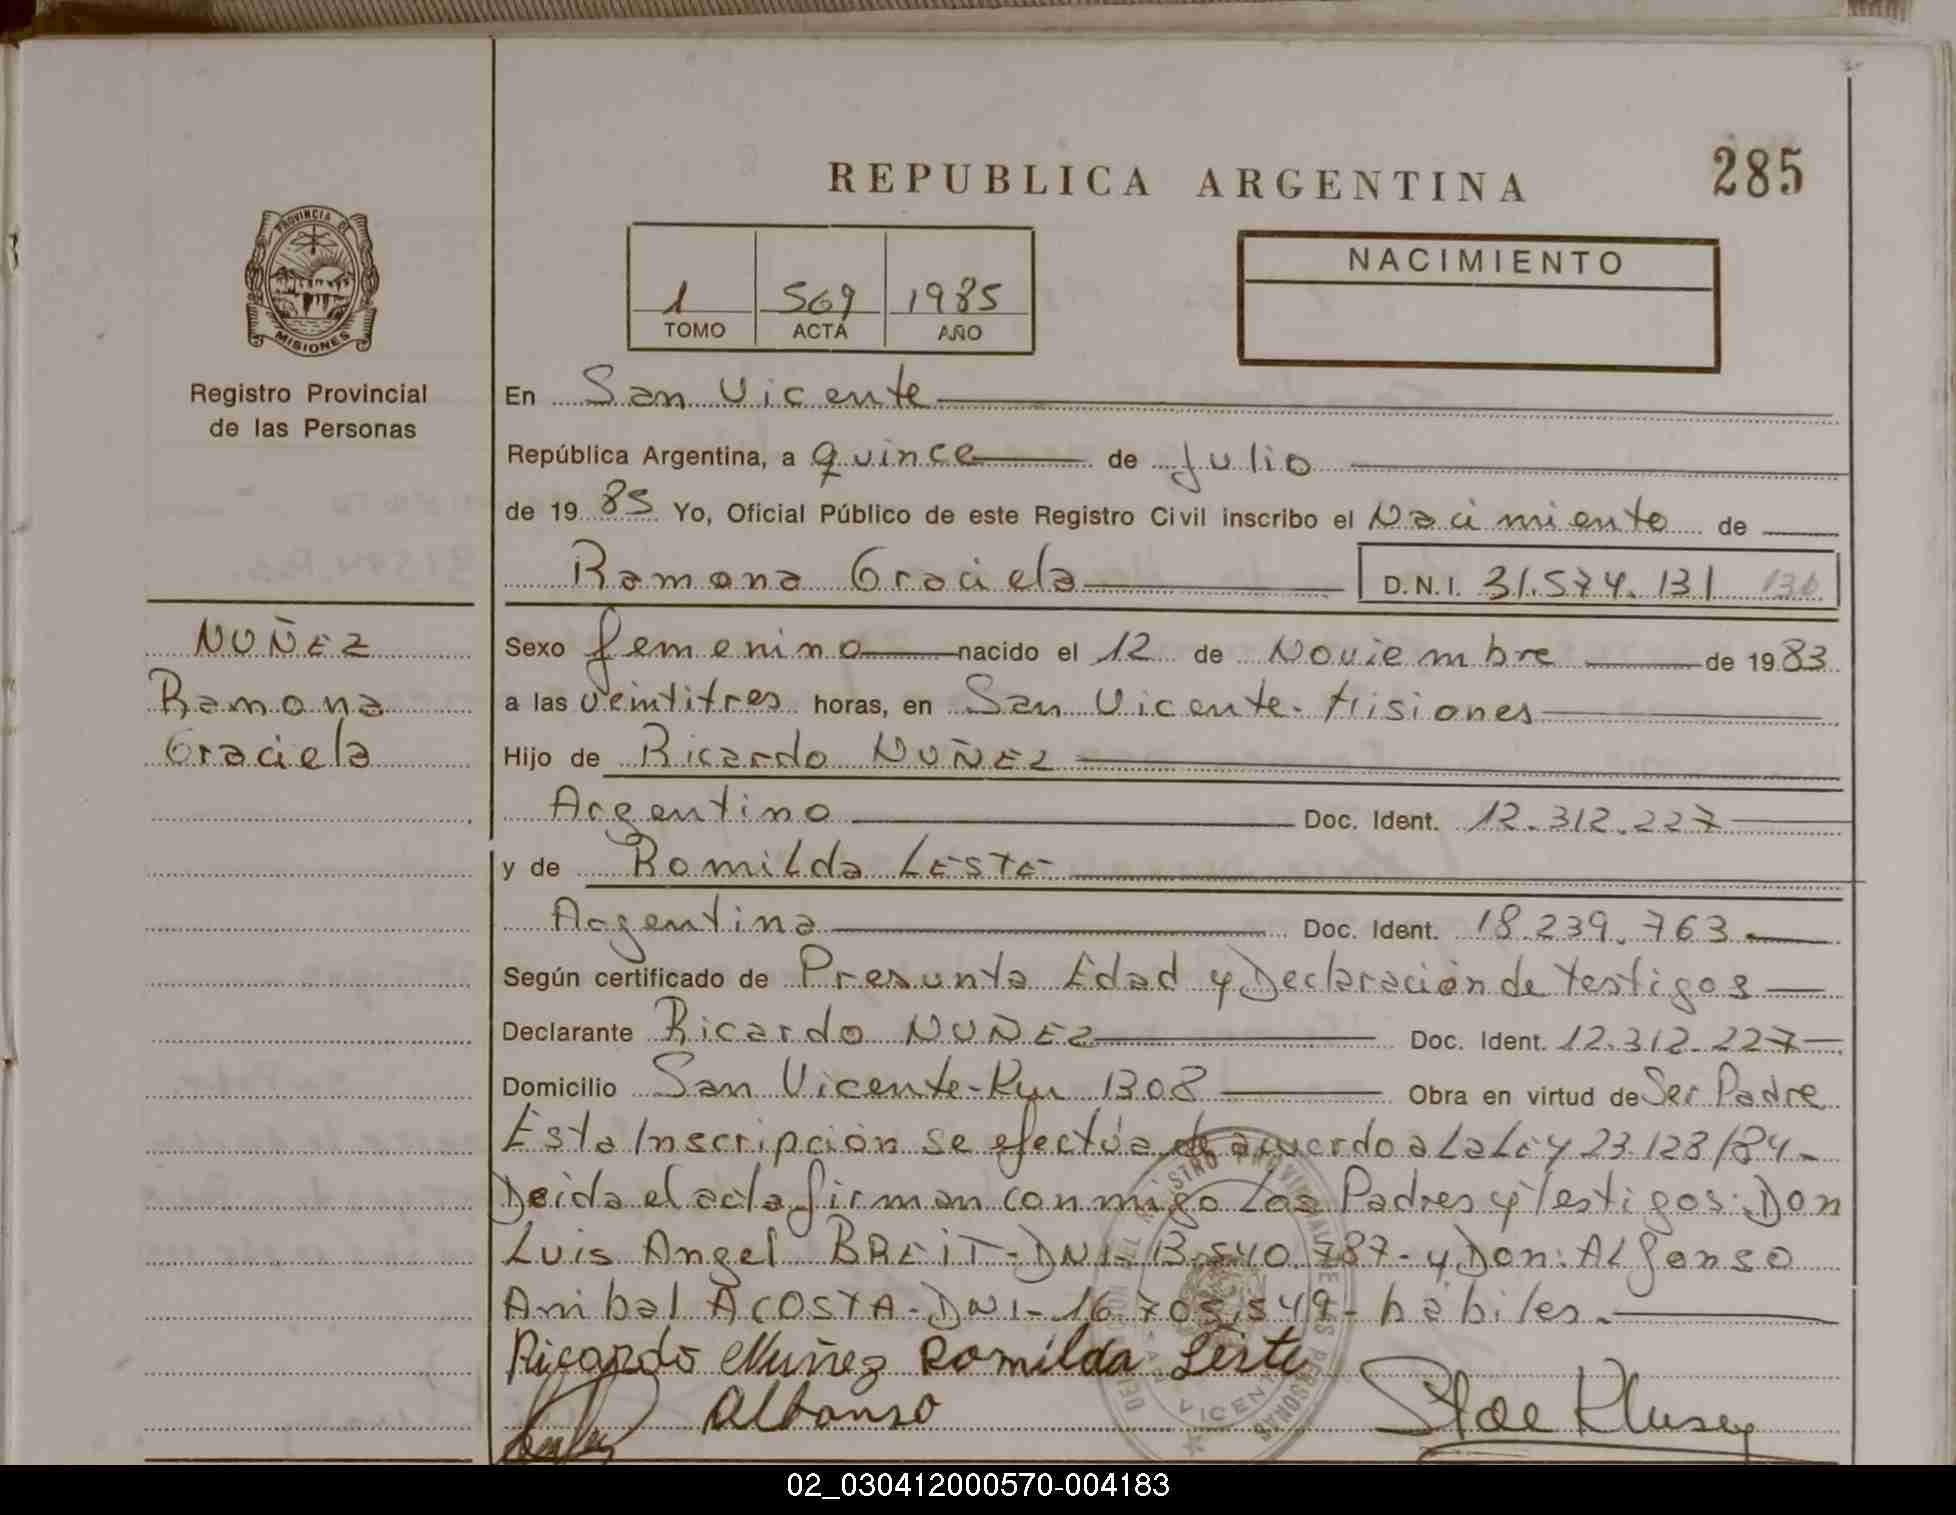 REPUBLICA ARGENTINA
285
PROVINCIA DE
MISIONES
Registro Provincial
de las Personas
1 569 1985
TOMO ACTA AÑO
NACIMIENTO
En San Vicente
República Argentina, a quince de julio
de 1985 Yo, Oficial Público de este Registro Civil inscribo el Nacimiento de
Ramona Graciela D.N.I. 31.574.131
NUÑEZ
Ramona
Graciela
Sexo femenino nacido el 12 de Noviembre de 1983
a las veintitres horas, en San Vicente - Misiones
Hijo de Ricardo NUÑEZ
Argentino Doc. Ident. 12.312.227
y de Romilda LESTE
Argentina Doc. Ident. 18.239.763
Según certificado de Presunta Edad y Declaración de testigos
Declarante Ricardo NUÑEZ Doc. Ident. 12.312.227
Domicilio San Vicente - Km 1308 Obra en virtud de Ser Padre
Esta Inscripción se efectúa de acuerdo a La Ley 23.128/84.
el acta firman conmigo Los Padres y Testigos: Don
Luis Angel BREIT - DNI - 13.540.787 - y Don: ALfonso
Anibal ACOSTA - DNI - 16.705.549 - hábiles.
Ricardo Nuñez Romilda Leste
Alfonso
02_030412000570-004183